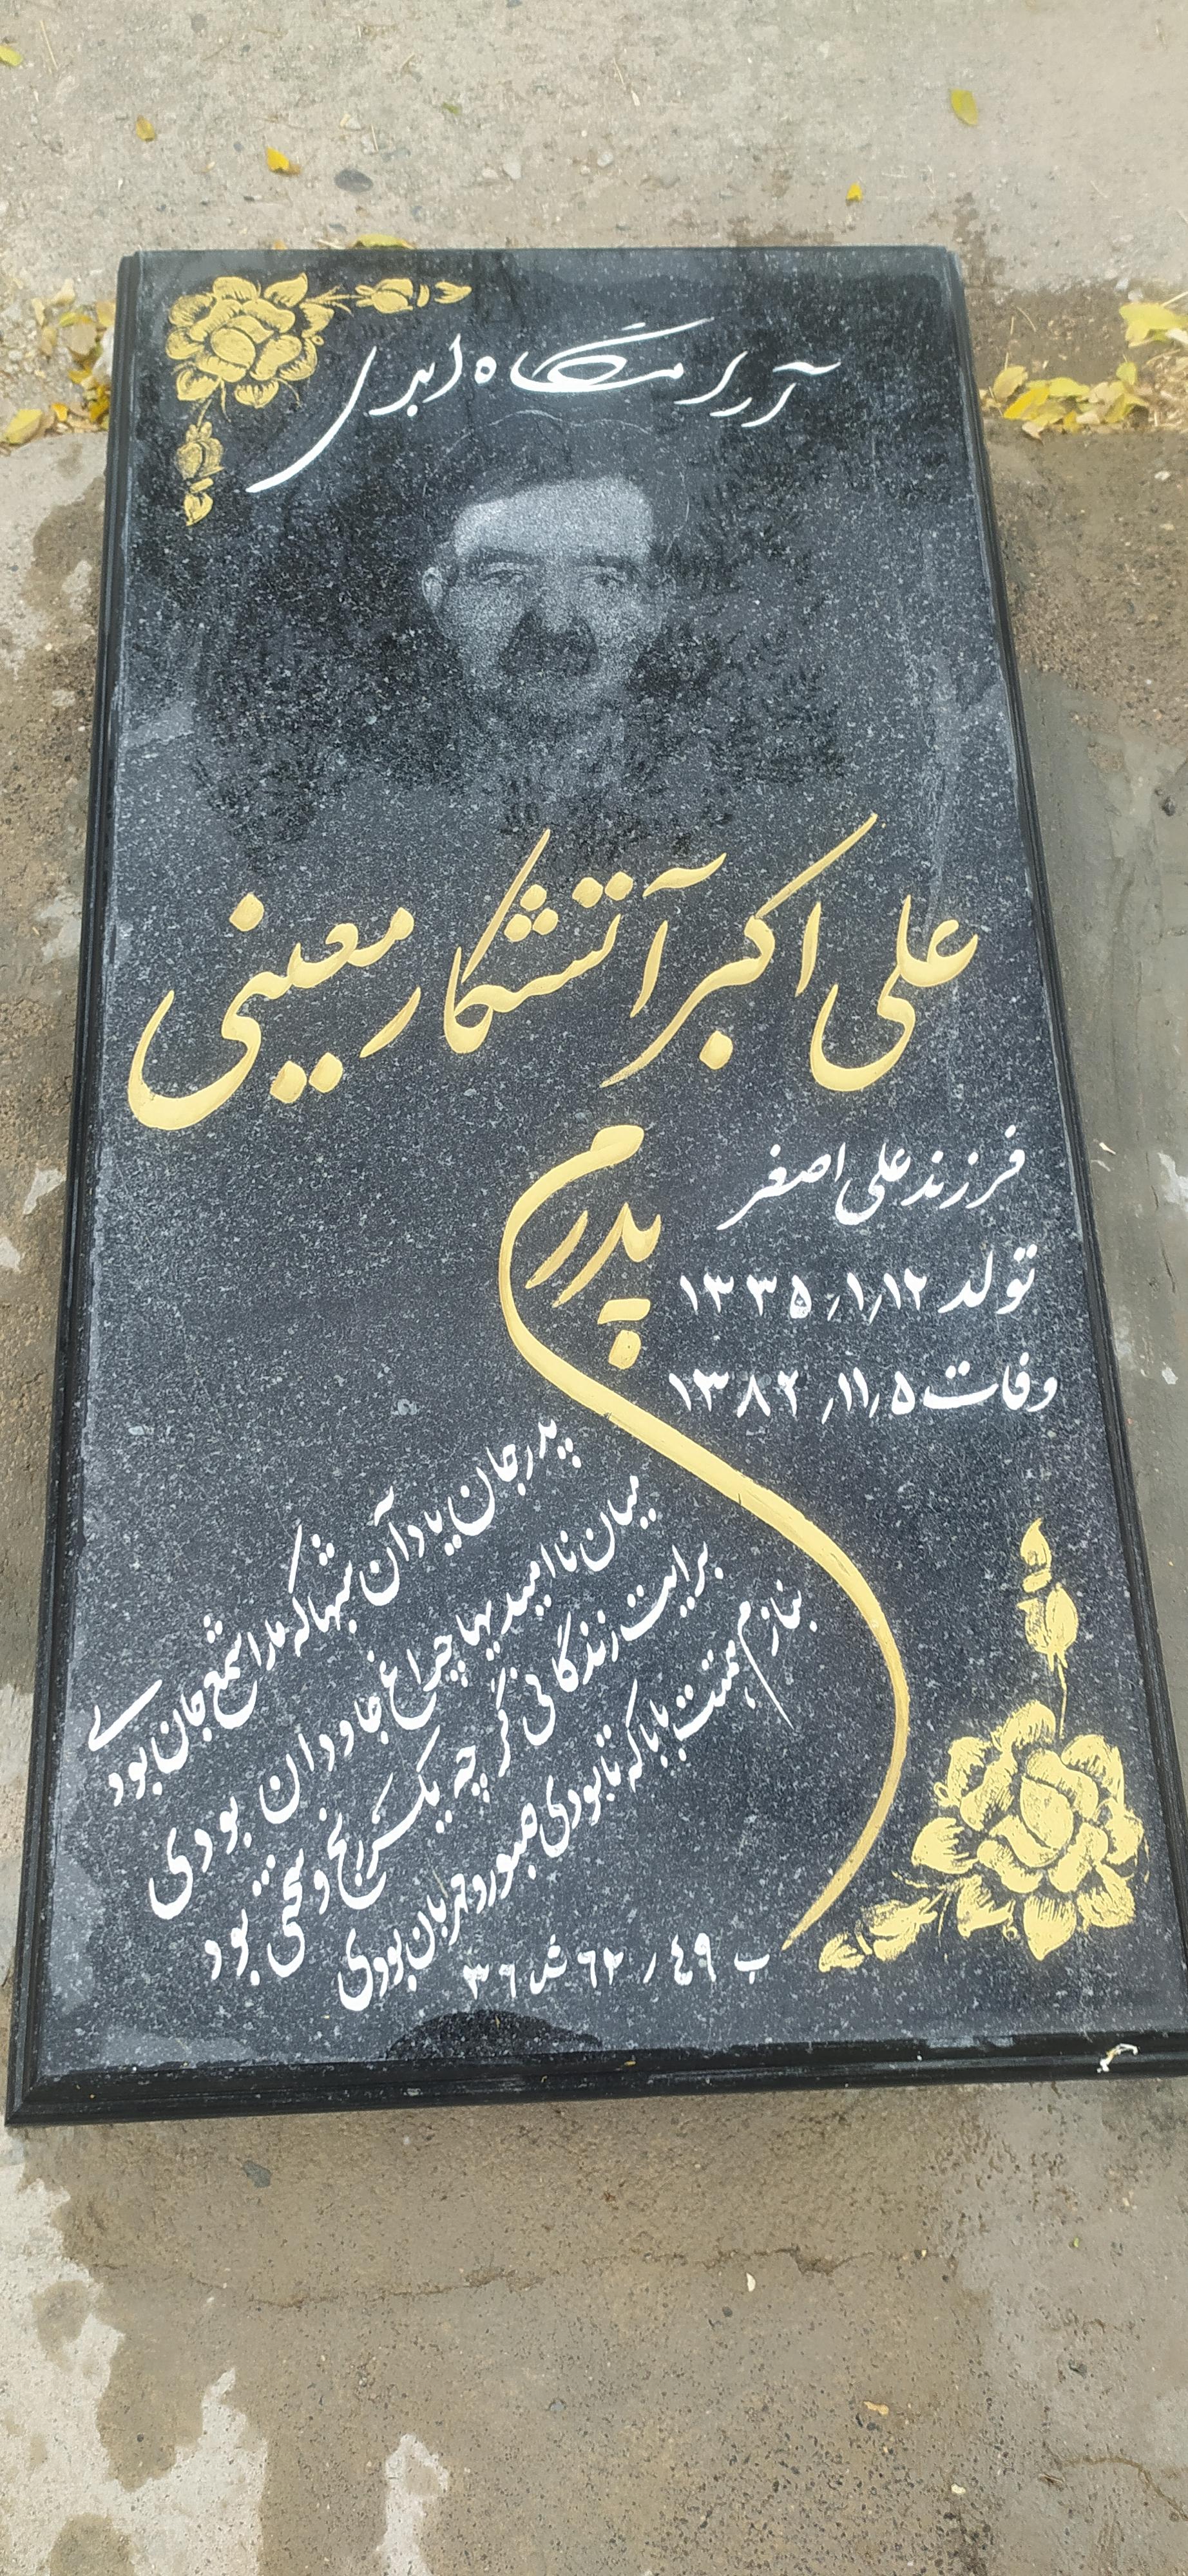 آرامگاه ابدی
علی اکبر آتشکار معینی
فرزند علی اصغر
تولد ۱۳۳۵٫۱٫۱۲
وفات ۱۳۸۲٫۱۱٫۵
پدرم
پدر جان یاد آن شبها که ما را شمع جان بودی
میان ناامیدیها چراغ جاودان بودی
برایت زندگانی گر چه یکسر رنج و سختی بود
بنازم همتت بابا که تا بودی صبور و مهربان بودی
ب ٤۹ ر ٦۲ ش ۳٦